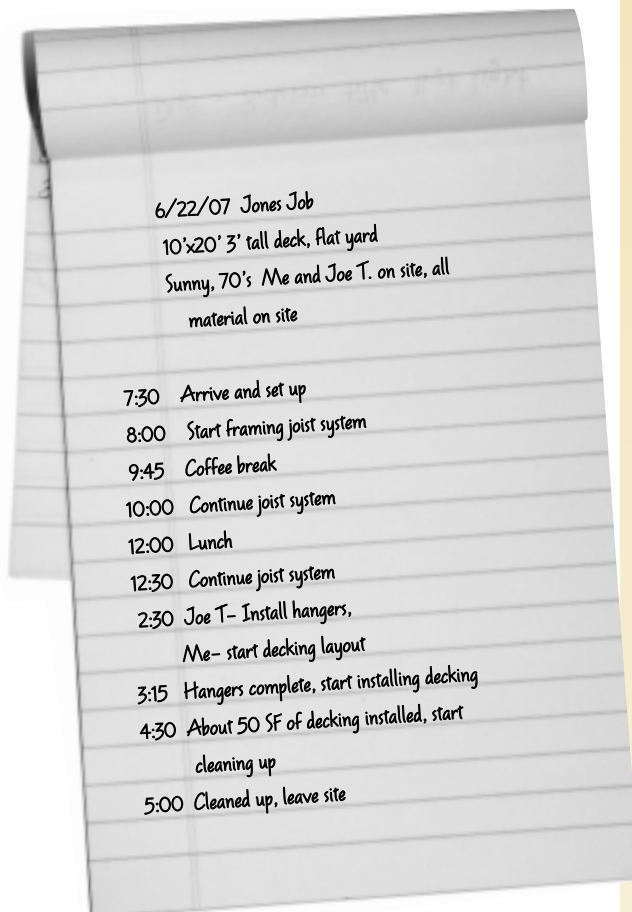 6/22/07 Jones Job
10'x20' 3' tall deck, flat yard
Sunny, 70's Me and Joe T. on site, all
material on site
7:30 Arrive and set up
8:00 Start framing joist system
9:45 Coffee break
10:00 Continue joist system
12:00 Lunch
12:30 Continue joist system
2:30 Joe T– Install hangers,
Me– start decking layout
3:15 Hangers complete, start installing decking
4:30 About 50 SF of decking installed, start
cleaning up
5:00 Cleaned up, leave site